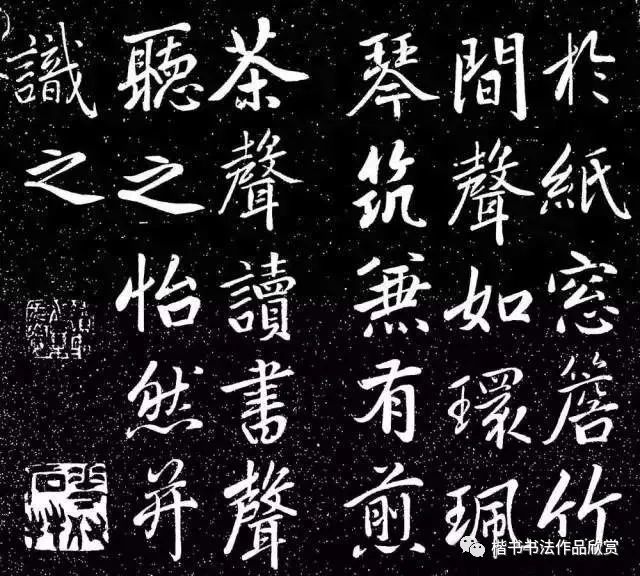 於紙窓簷竹
間聲如環珮
琴筑兼有煎
茶聲讀書聲
聽之怡然并
識之
楷书书法作品欣赏